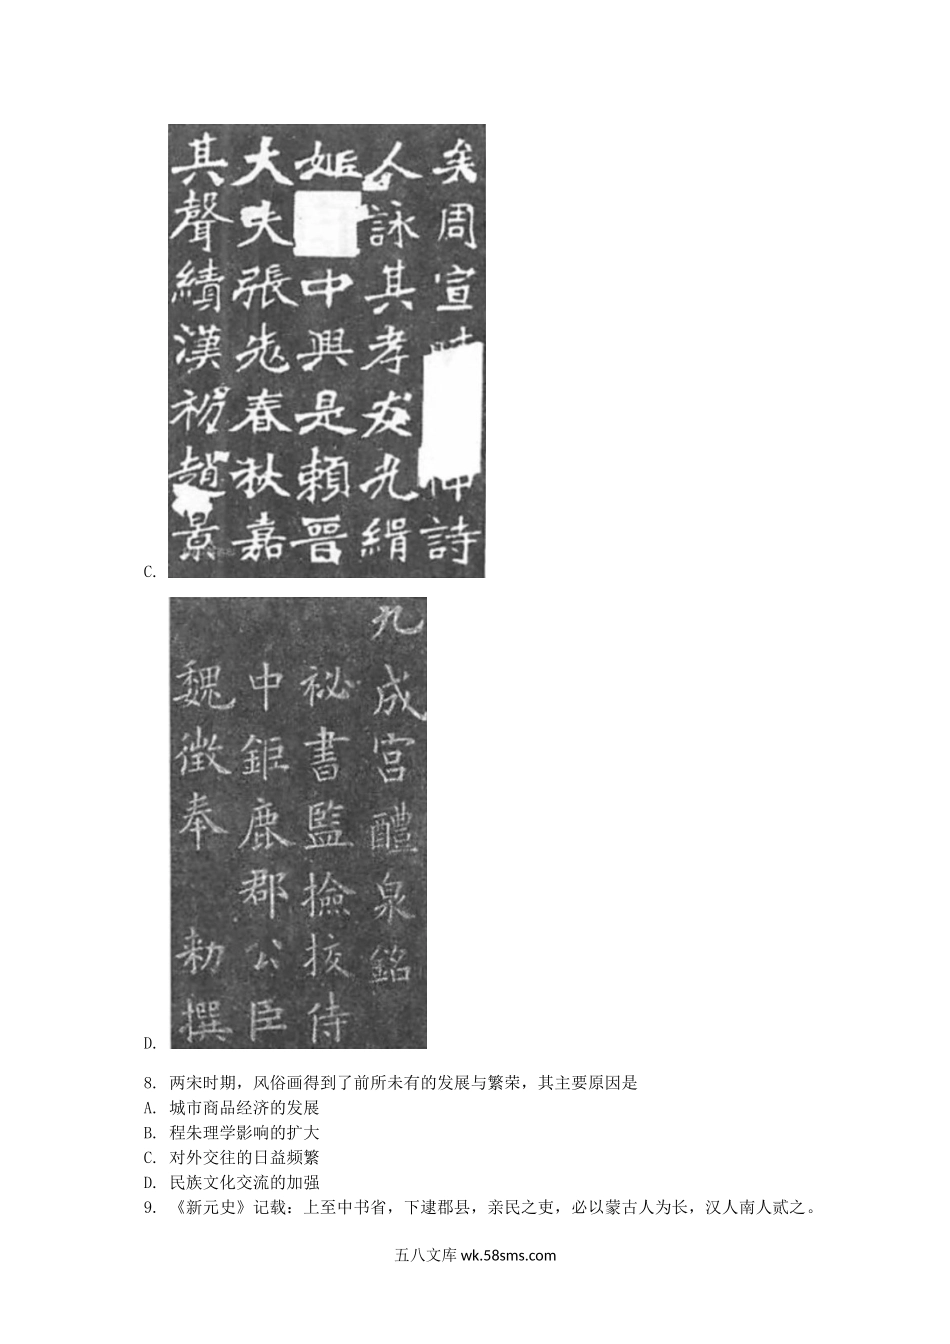 矣周宣
仲詩
人詠其孝友光緝
姬
中興是賴晉
大夫張老春秋嘉
其聲績漢初趙景
C.
九成宮醴泉銘
祕書監撿挍侍
中鉅鹿郡公臣
魏徵奉 勑撰
D.
8. 两宋时期，风俗画得到了前所未有的发展与繁荣，其主要原因是
A. 城市商品经济的发展
B. 程朱理学影响的扩大
C. 对外交往的日益频繁
D. 民族文化交流的加强
9. 《新元史》记载：上至中书省，下逮郡县，亲民之吏，必以蒙古人为长，汉人南人贰之。
五八文库 wk.58sms.com